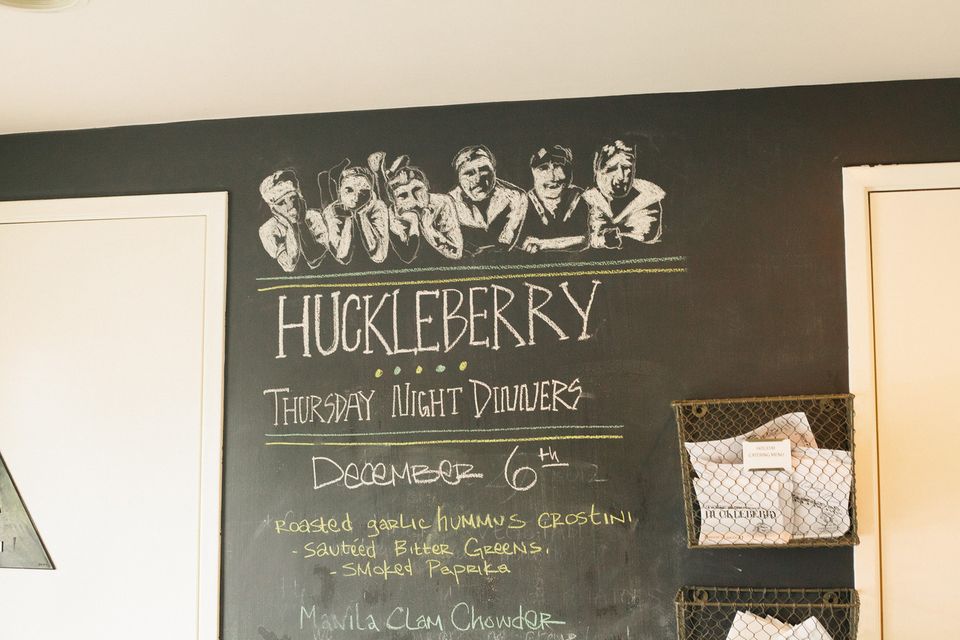 HUCKLEBERRY
THURSDAY NIGHT DINNERS
DECEMBER 6th
Roasted garlic hummus crostini
- sautéed Bitter Greens,
- smoked Paprika
Manila Clam Chowder
HOLIDAY
CATERING MENU
HUCKLEBERRY